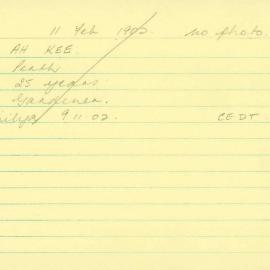 11 Feb 1902. no photo.
AH KEE.
Perth
25 years
Gardener.
9.11.02. CEDT